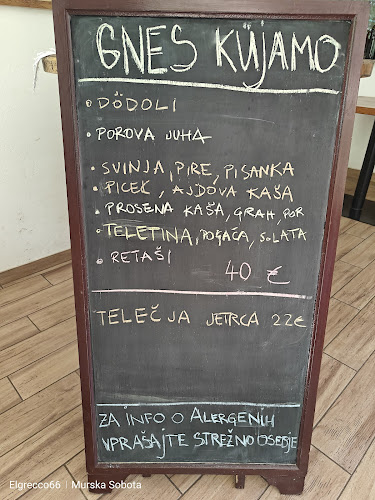 GNES KÜJAMO
• DÖDOLI
• POROVA JUHA
• SVINJA, PIRE, PISANKA
• PICEK, AJDOVA KAŠA
• PROSENA KAŠA, GRAH, POR
• TELETINA, POGAČA, SOLATA
• RETAŠI
40 €
TELEČJA JETRCA 22€
ZA INFO O ALERGENIH
VPRAŠAJTE STREŽNO OSEBJE
Elgrecco66 | Murska Sobota